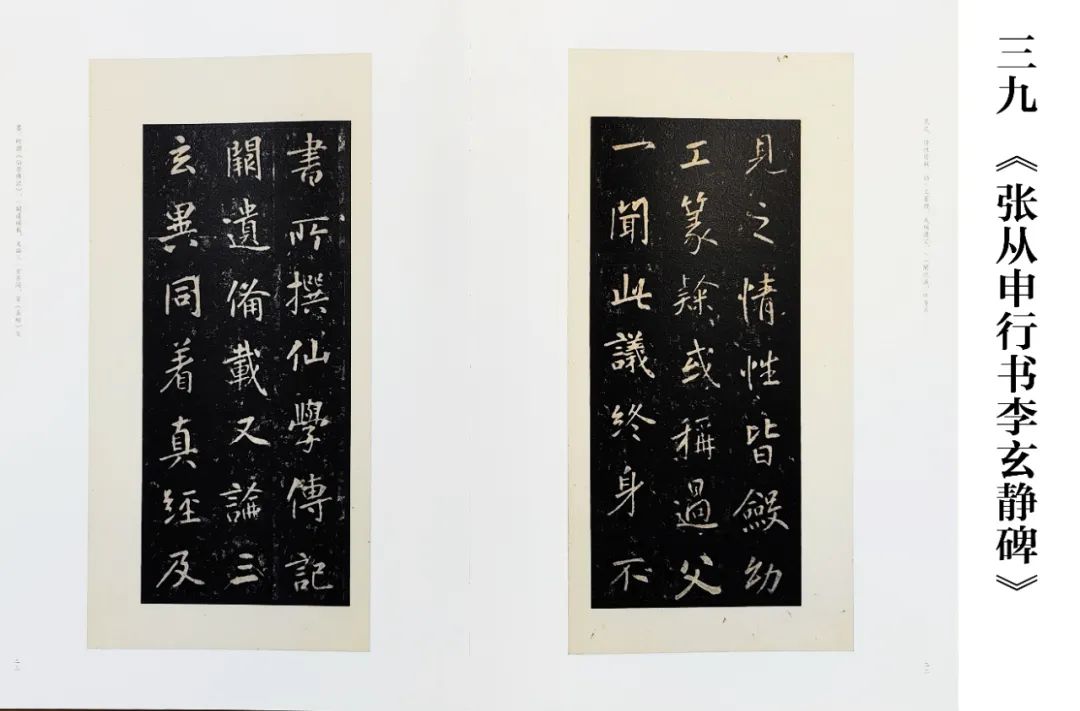 三九 《张从申行书李玄静碑》
見之情性皆斂幼
工篆隸或稱過父
一聞此議終身不
書所撰仙學傳記
闕遺備載又論三
玄異同着真經及